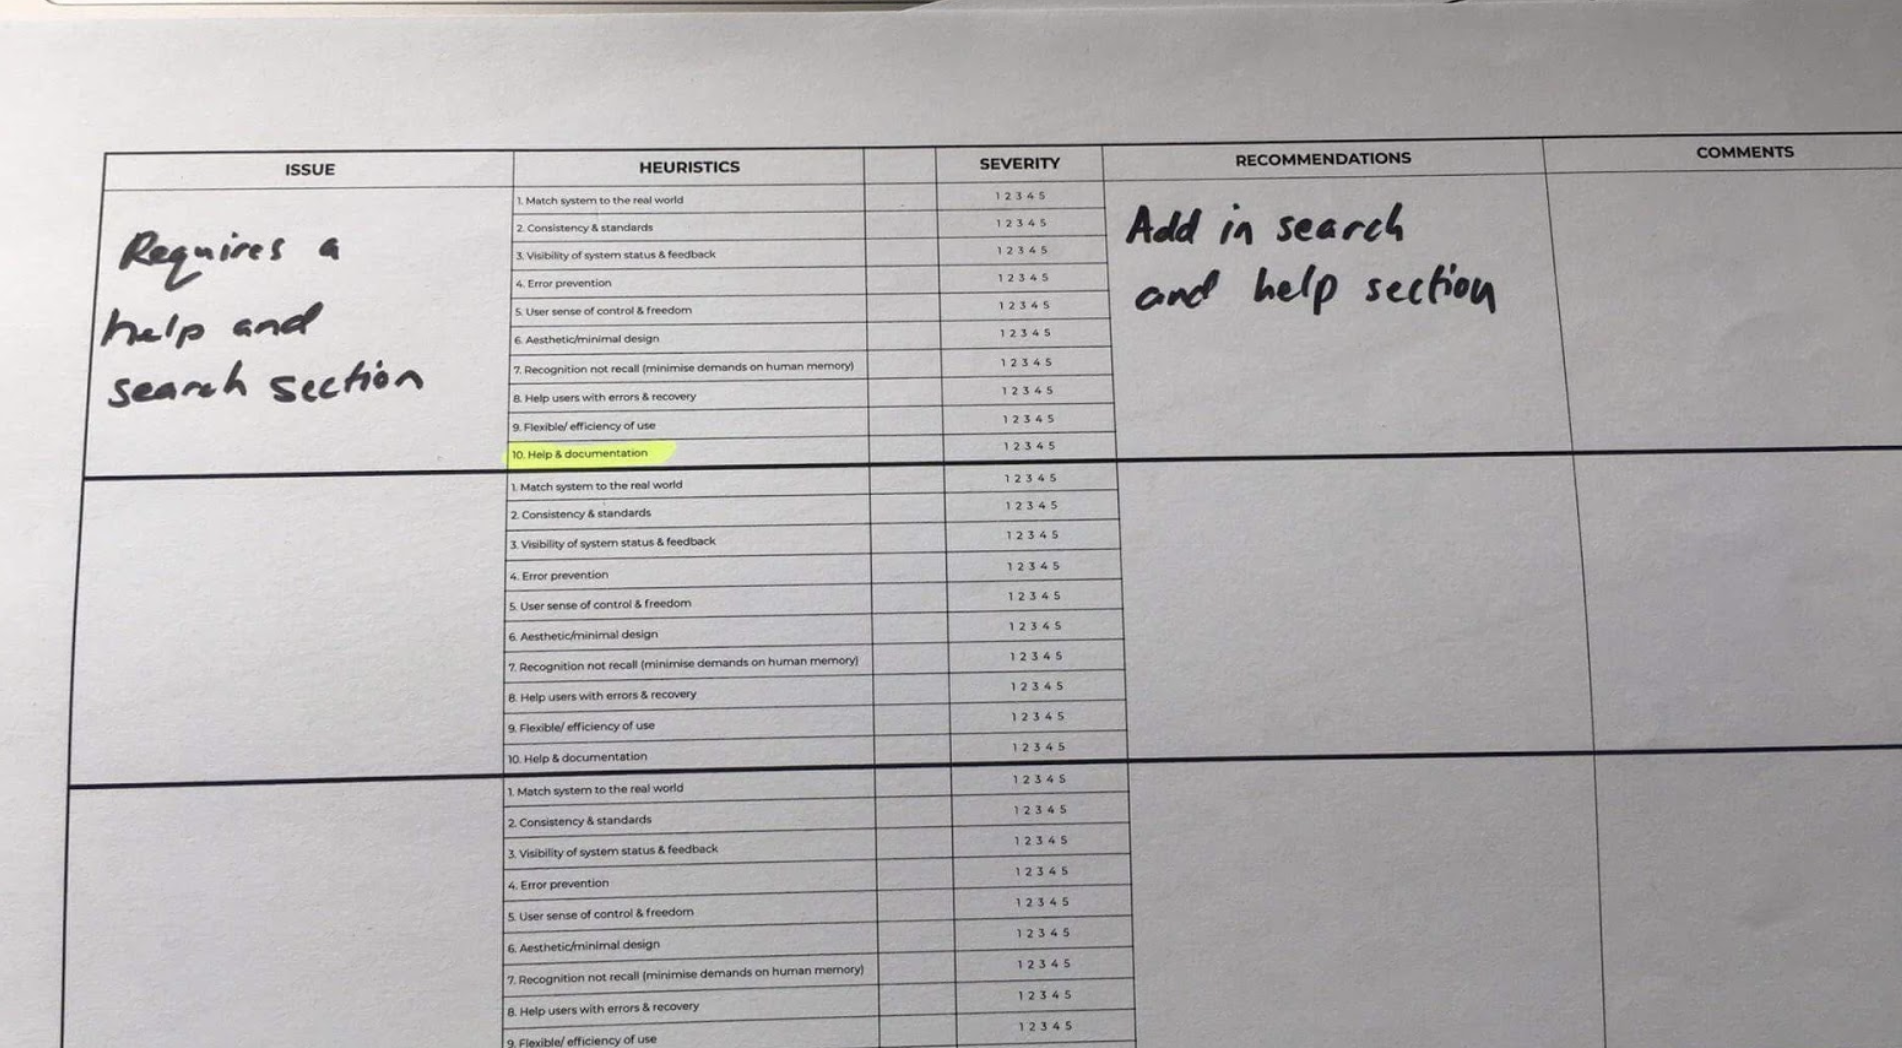 ISSUE HEURISTICS SEVERITY RECOMMENDATIONS COMMENTS
Requires a
help and
search section
1. Match system to the real world 1 2 3 4 5
2. Consistency & standards 1 2 3 4 5
3. Visibility of system status & feedback 1 2 3 4 5
4. Error prevention 1 2 3 4 5
5. User sense of control & freedom 1 2 3 4 5
6. Aesthetic/minimal design 1 2 3 4 5
7. Recognition not recall (minimise demands on human memory) 1 2 3 4 5
8. Help users with errors & recovery 1 2 3 4 5
9. Flexible/ efficiency of use 1 2 3 4 5
10. Help & documentation 1 2 3 4 5
Add in search
and help section
1. Match system to the real world 1 2 3 4 5
2. Consistency & standards 1 2 3 4 5
3. Visibility of system status & feedback 1 2 3 4 5
4. Error prevention 1 2 3 4 5
5. User sense of control & freedom 1 2 3 4 5
6. Aesthetic/minimal design 1 2 3 4 5
7. Recognition not recall (minimise demands on human memory) 1 2 3 4 5
8. Help users with errors & recovery 1 2 3 4 5
9. Flexible/ efficiency of use 1 2 3 4 5
10. Help & documentation 1 2 3 4 5
1. Match system to the real world 1 2 3 4 5
2. Consistency & standards 1 2 3 4 5
3. Visibility of system status & feedback 1 2 3 4 5
4. Error prevention 1 2 3 4 5
5. User sense of control & freedom 1 2 3 4 5
6. Aesthetic/minimal design 1 2 3 4 5
7. Recognition not recall (minimise demands on human memory) 1 2 3 4 5
8. Help users with errors & recovery 1 2 3 4 5
9. Flexible/ efficiency of use 1 2 3 4 5